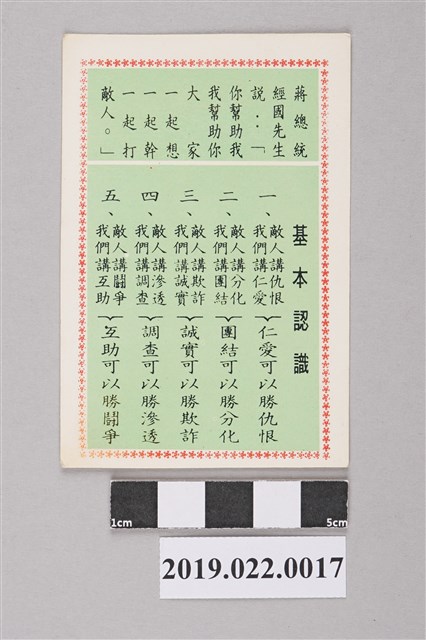 蔣總統
經國先生
說：「
你幫助我
我幫助你
大家
一起想
一起幹
一起打
敵人。」
基本認識
一、敵人講仇恨
我們講仁愛
仁愛可以勝仇恨
二、敵人講分化
我們講團結
團結可以勝分化
三、敵人講欺詐
我們講誠實
誠實可以勝欺詐
四、敵人講滲透
我們講調查
調查可以勝滲透
五、敵人講鬪爭
我們講互助
互助可以勝鬪爭
1cm
5cm
2019.022.0017